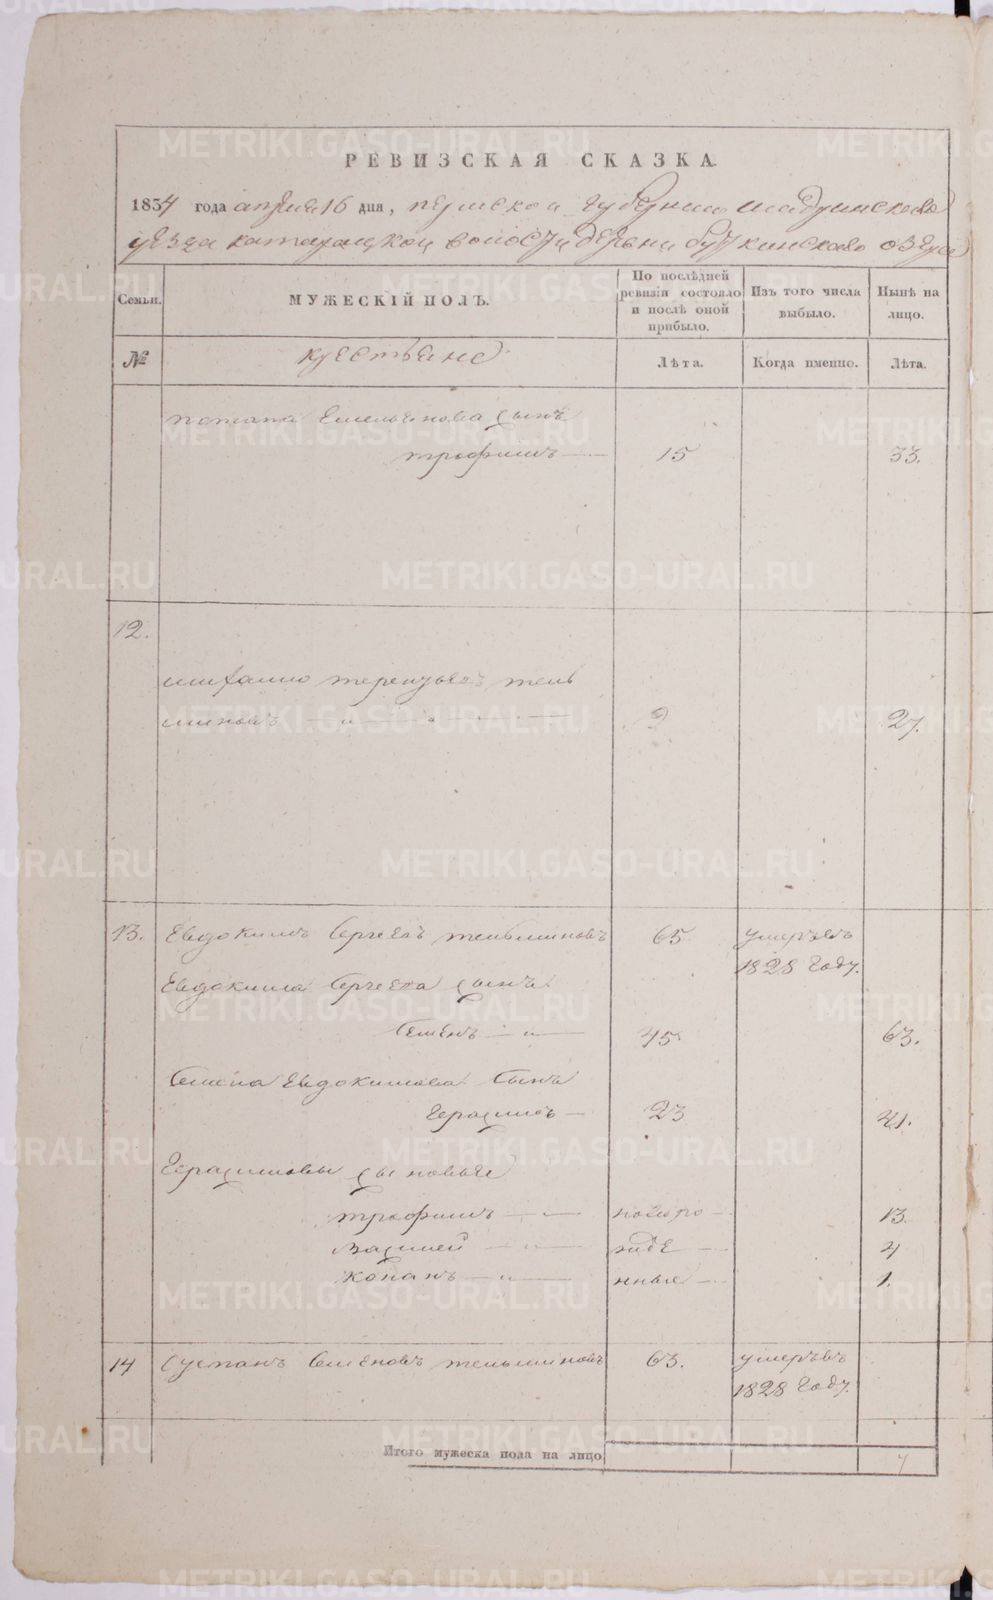 РЕВИЗСКАЯ СКАЗКА.
1834 года апреля 16 дня, пермской губернии шадринскаго
уезда катарацкой волости деревни буткинскаго озера
Семьи.
МУЖЕСКІЙ ПОЛЪ.
По послѣдней ревизіи состояло и послѣ оной прибыло.
Изъ того числа выбыло.
Нынѣ на лицо.
№
крестьяне
Лѣта.
Когда именно.
Лѣта.
потапа Емельянова сынъ
трофимъ 15 33.
12.
михаило терентьевъ тель
миновъ 9 27.
13. Евдокимъ Сергеевъ тельминовъ 65 умеръ въ
1828 году.
Евдокима Сергеева сынъ
Семенъ 45 63.
Семена Евдокимова Сынъ
Герасимъ 23 41.
Герасимовы сыновья
трофимъ новоро 13.
Василей жде 4
конанъ нные 1.
14 Семеновъ тельминовъ 63. умеръ въ
1828 году.
Итого мужеска пола на лицо 7
METRIKI.GASO-URAL.RU